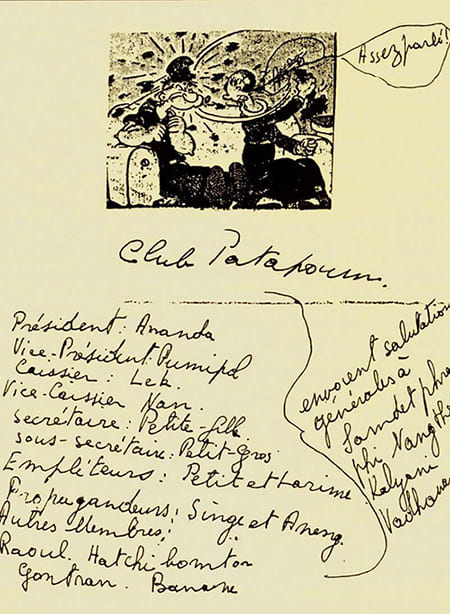 Assez parlé!
Club Patapoum.
Président: Ananda
Vice-Président Pumipol
Caissier: Lek.
Vice-Caissier Nan.
secrétaire: Petite-fille
sous-secrétaire: Petit-Gros
Emplâteurs: Petit et Lorime
Propagandeurs: Singe et
Autres Membres:
Raoul. Hatchi bomtor
Gontran. Banane
envoient salutations
générales à
Samdet phra
phi Nang
Kalyani
Vadhana